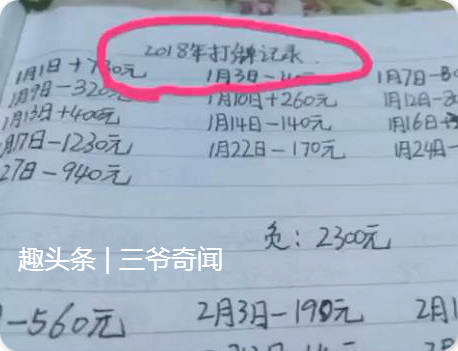 2018年打牌记录
1月1日+730元 1月3日-110元 1月7日-80
1月9日-320元 1月10日+260元 1月12日
1月13日+400元 1月14日-140元 1月16日
1月17日-1230元 1月22日-170元 1月24日-
27日-940元
负:2300元
趣头条|三爷奇闻
-560元 2月3日-190元 2月1